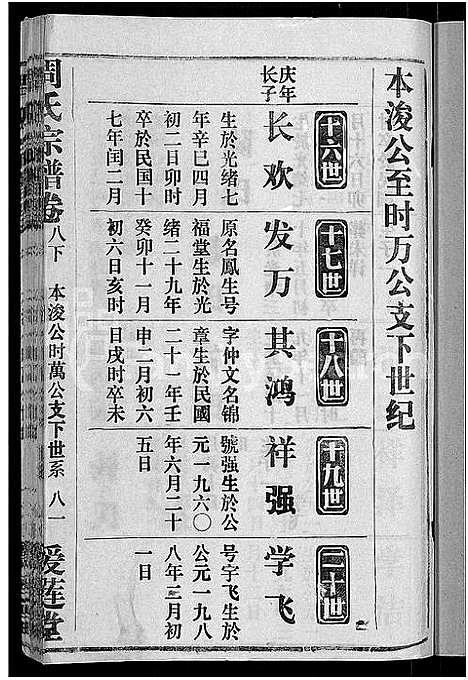 本浚公至时万公支下世纪
十六世
十七世
十八世
十九世
二十世
庆年
长子
长欢
发万
其鸿
祥强
学飞
生於光绪七
年辛巳四月
初二日卯时
卒於民国十
七年闰二月
原名鳳生号
福堂生於光
绪二十九年
癸卯十一月
初六日亥时
字仲文名錦
章生於民國
二十一年壬
申二月初六
日戌時卒未
號强生於公
元一九六〇
年六月二十
五日
号宇飞生於
公元一九八
八年二月初
一日
周氏宗譜卷
八下
本浚公时萬公支下世系
八一
爱莲堂